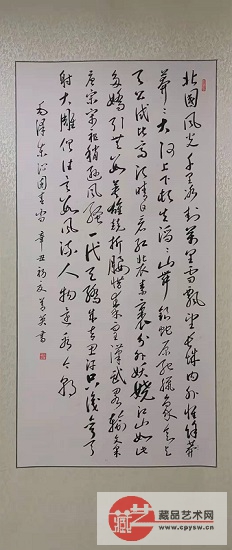 北国风光千里冰封万里雪飘望长城内外惟余莽
莽大河上下顿失滔滔山舞银蛇原驰蜡象欲与
天公试比高须晴日看红装素裹分外妖娆江山如此
多娇引无数英雄竞折腰惜秦皇汉武略输文采
唐宗宋祖稍逊风骚一代天骄成吉思汗只识弯弓
射大雕俱往矣数风流人物还看今朝
毛泽东沁园春雪辛丑
藏艺
藏品艺术网
www.cpysw.cn